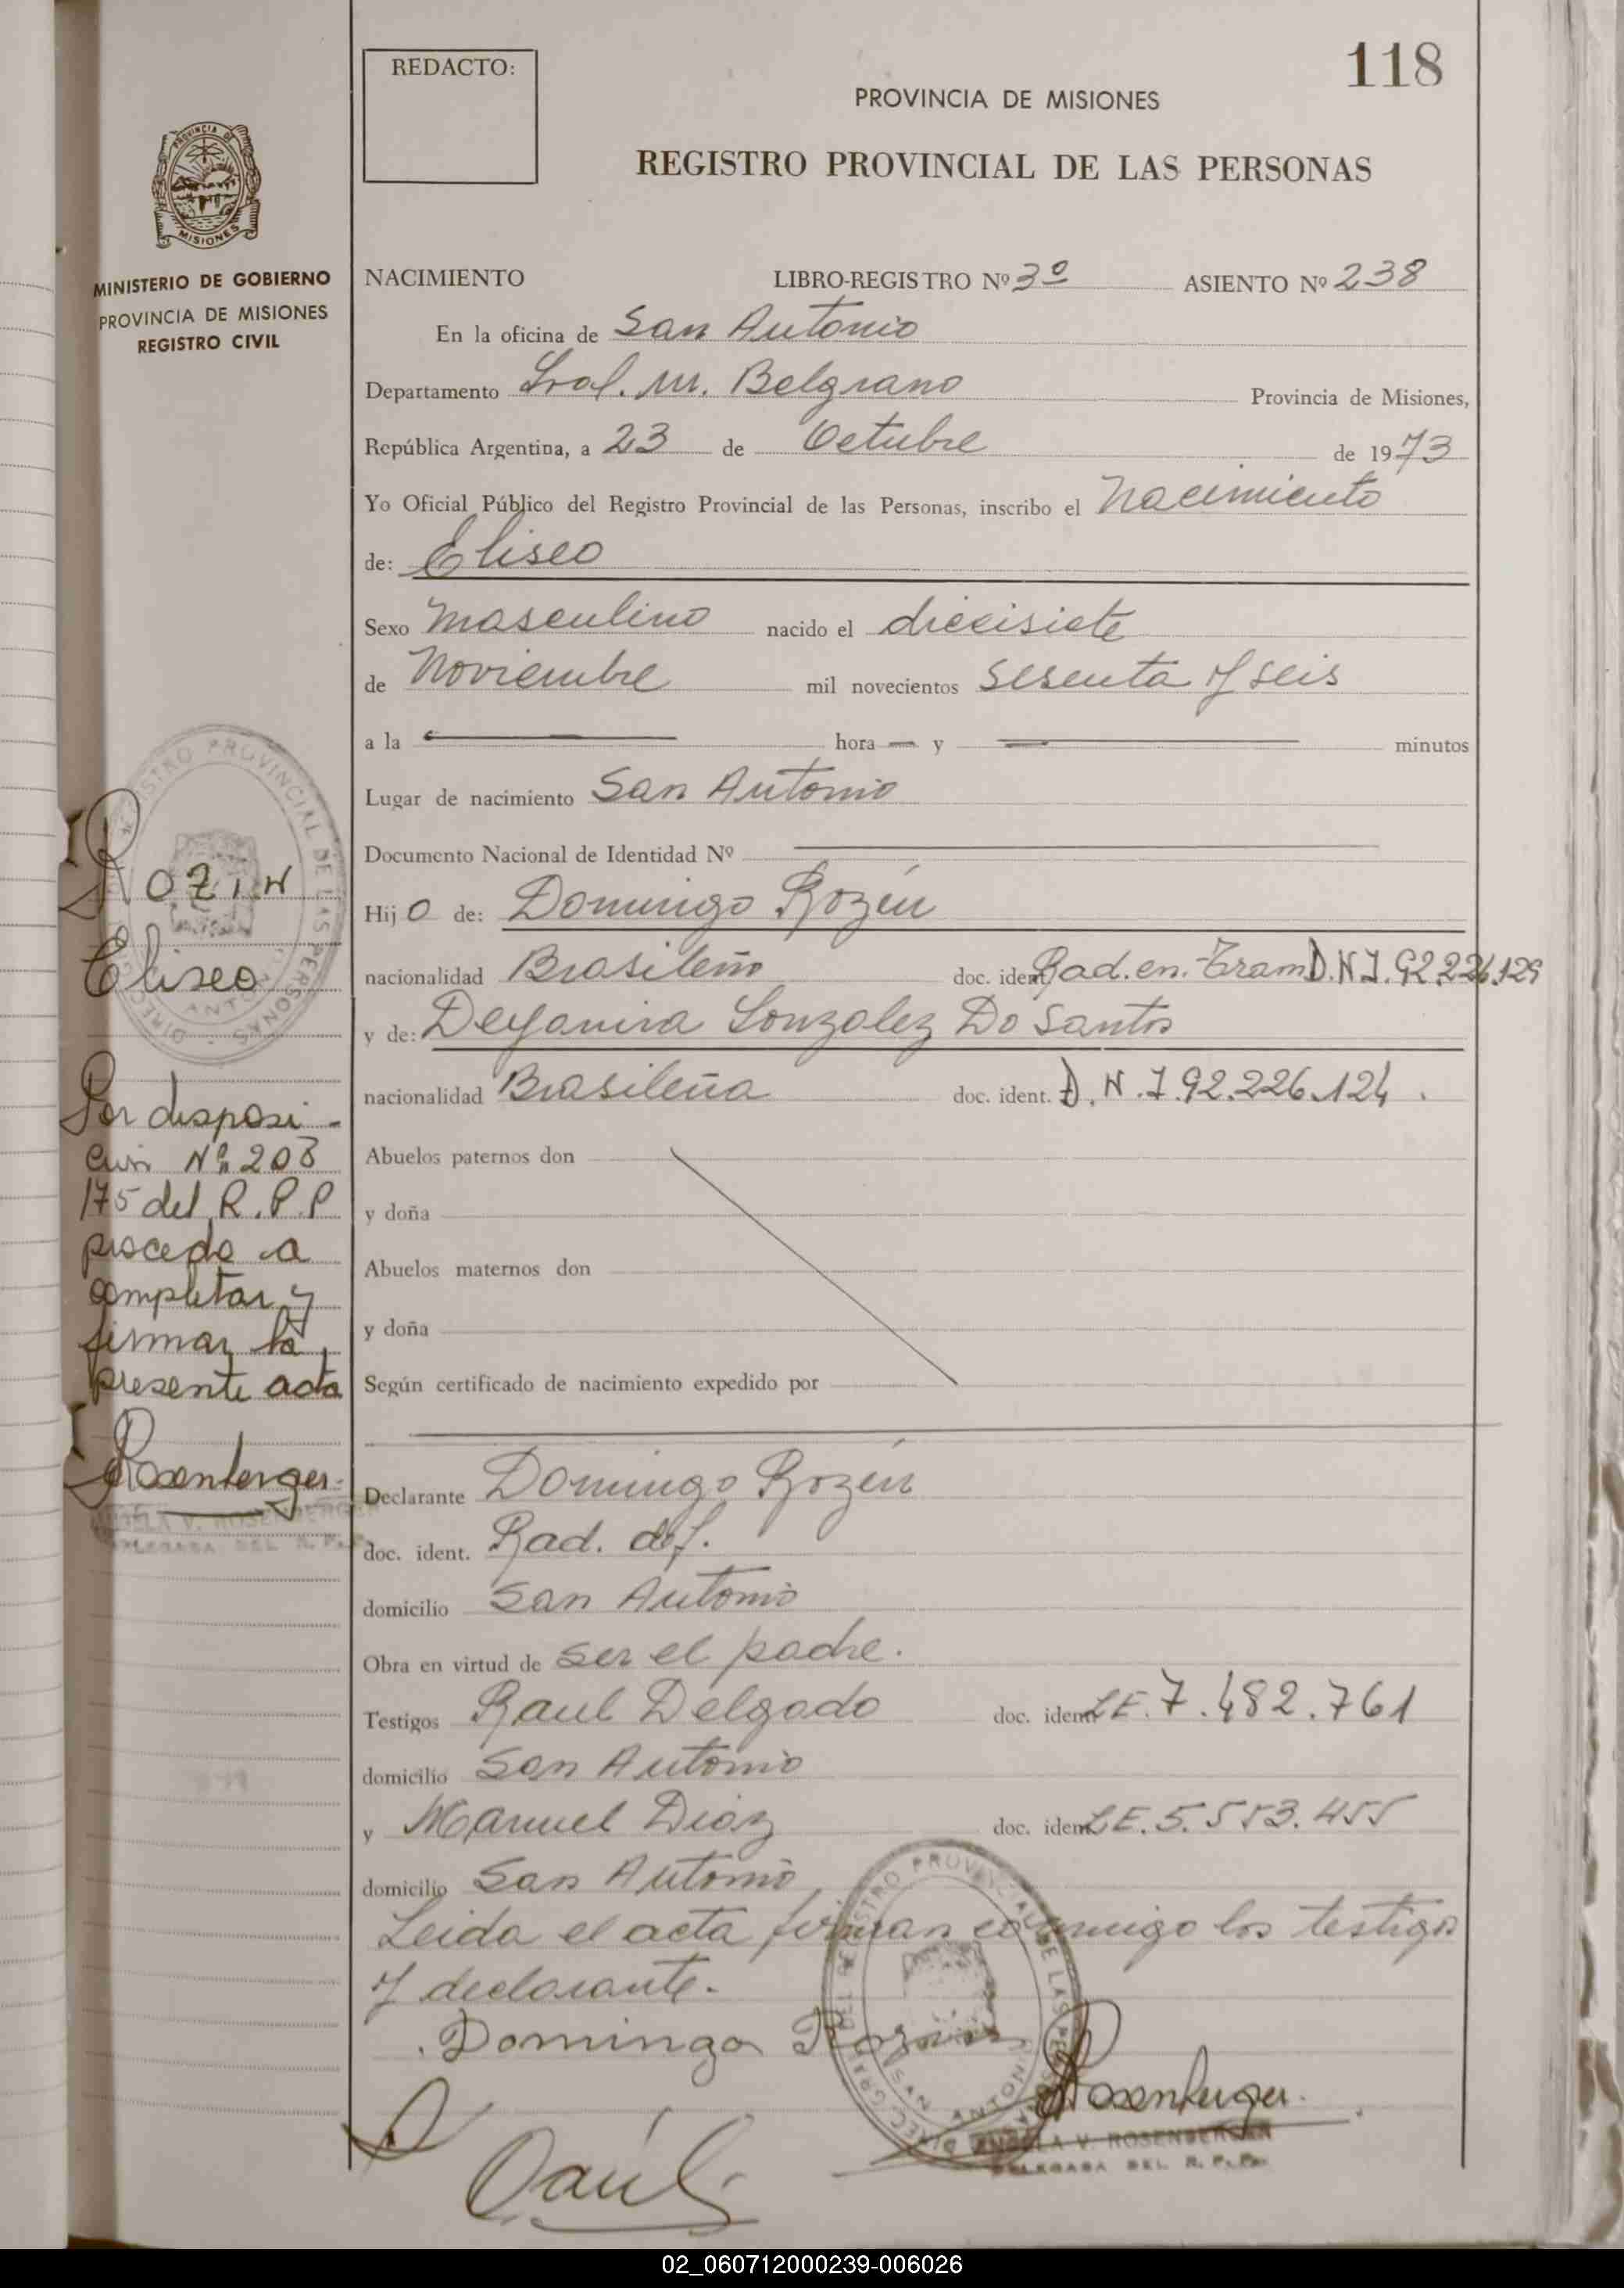 REDACTO:
118
PROVINCIA DE MISIONES
REGISTRO PROVINCIAL DE LAS PERSONAS
MISIONES
MINISTERIO DE GOBIERNO
PROVINCIA DE MISIONES
REGISTRO CIVIL
NACIMIENTO LIBRO-REGISTRO Nº 3º ASIENTO Nº 238
En la oficina de San Antonio
Departamento Gral. M. Belgrano Provincia de Misiones,
República Argentina, a 23 de Octubre de 1973
Yo Oficial Público del Registro Provincial de las Personas, inscribo el Nacimiento
de: Eliseo
Sexo Masculino nacido el diecisiete
de Noviembre mil novecientos sesenta y seis
a la hora y minutos
Lugar de nacimiento San Antonio
Documento Nacional de Identidad Nº
Hijo de: Domingo Rozín
nacionalidad Brasileño doc. ident. Rad. en Tram D.N.I. 92.226.129
y de: Deyanira Gonzalez Do Santos
nacionalidad Brasileña doc. ident. D.N.I. 92.226.124.
Abuelos paternos don
y doña
Abuelos maternos don
y doña
Según certificado de nacimiento expedido por
Declarante Domingo Rozín
doc. ident. Rad. def.
domicilio San Antonio
Obra en virtud de ser el padre.
Testigos Raul Delgado doc. ident. LE. 7.482.761
domicilio San Antonio
y Manuel Diaz doc. ident. LE. 5.553.455
domicilio San Antonio
Leida el acta firman conmigo los testigos
y declarante.
Domingo
Rosenberger.
ANGELA V. ROSENBERGER
DELEGADA DEL R.P.P.
Raúl
ROZIN
Eliseo
Por disposi-
ción Nº 208
175 del R.P.P
procedo a
completar y
firmar la
presente acta
Rosenberger.
ANGELA V. ROSENBERGER
DELEGADA DEL R.P.P.
REGISTRO PROVINCIAL DE LAS PERSONAS
SAN ANTONIO
02_060712000239-006026